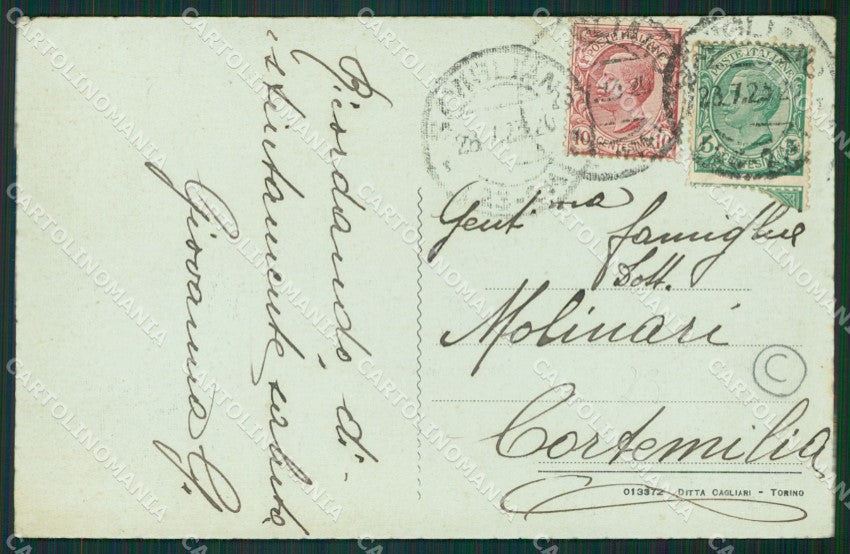 Ricordando, di-
stintamente saluta
Giovanna G.
Gent.ma famiglia
Dott.
Molinari
Cortemilia
013372 DITTA CAGLIARI - TORINO
POSTE ITALIANE
10 CENTESIMI 10
POSTE ITALIANE
5 CENTESIMI 5
23.1.23
C
CARTOLINOMANIA